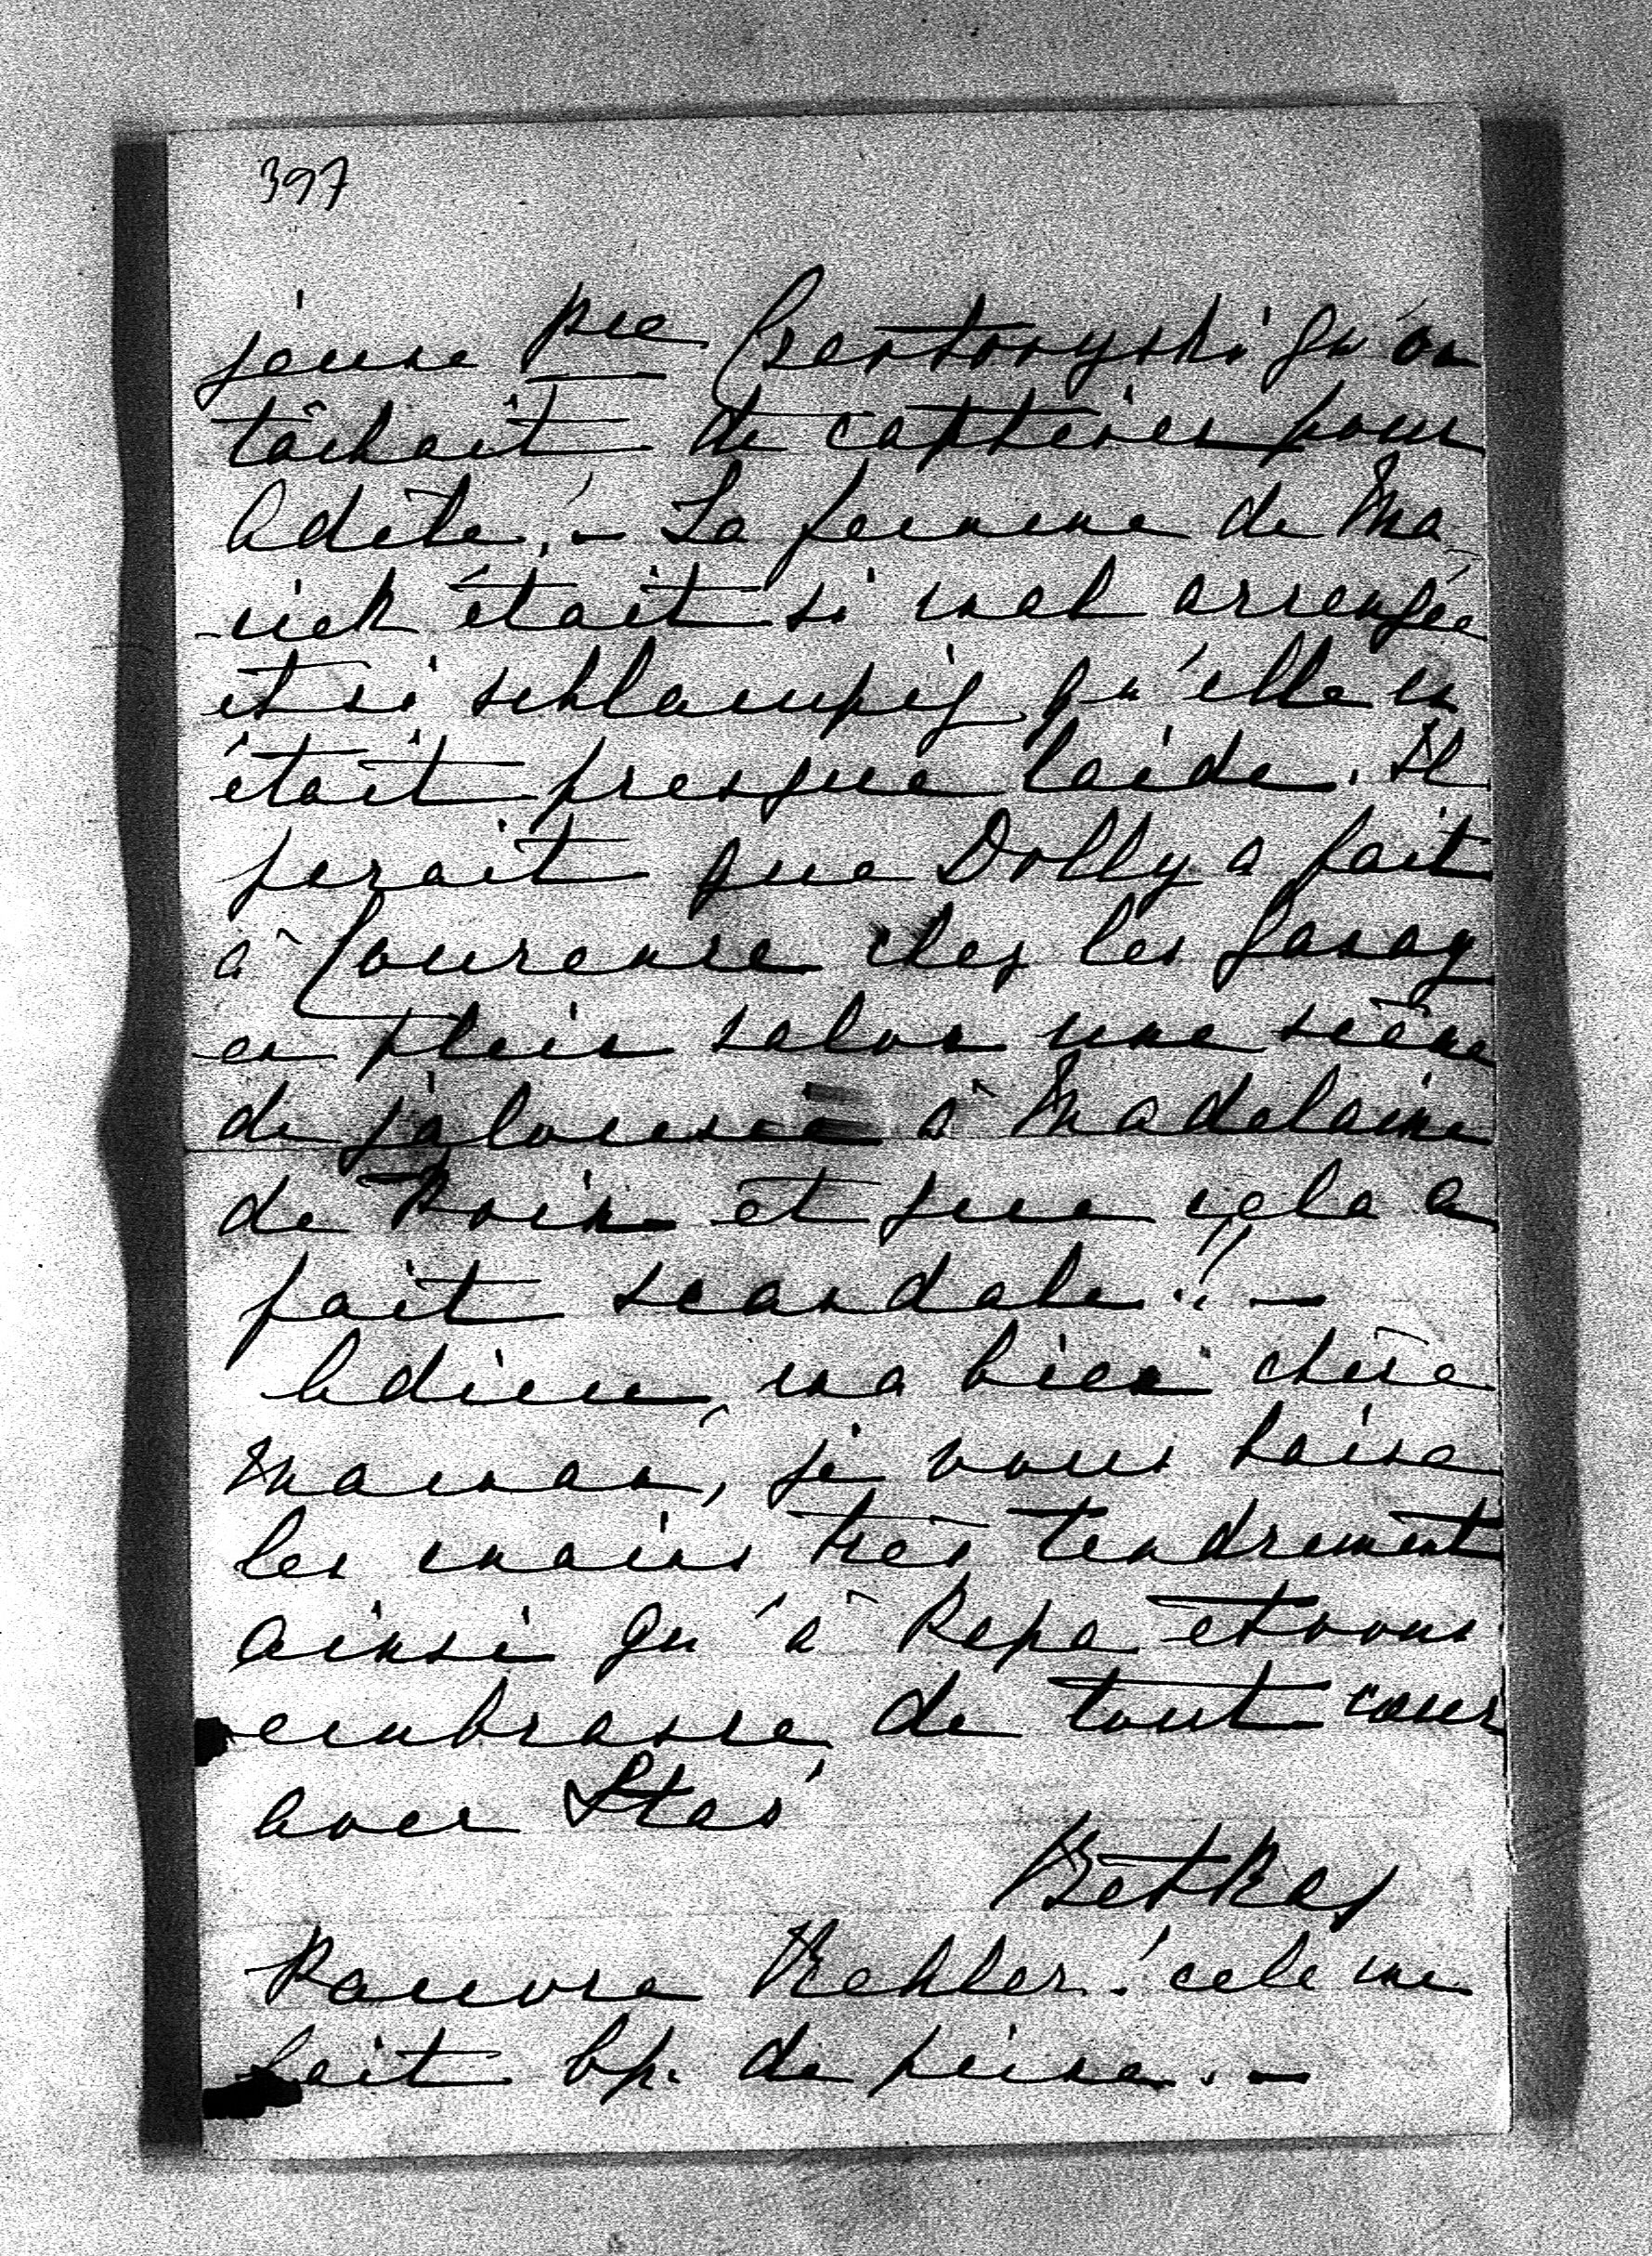 397
jeune Pce Czartoryski qu'on
tâchait de captiver pour
Adèle! – La femme de Ma-
rick était si mal arrangée
et si schlampig qu'elle en
était presque laide. Il
paraît que Dolly a fait
à Lourence chez les
en plein salon une scène
de jalousie à Madelaine
de Poix et que cela a
fait scandale!! –
Adieu, ma bien chère
Maman, je vous baise
les mains très tendrement
ainsi qu'à Papa et vous
embrasse de tout cœur
avec Staś
Betka
Pauvre Kehler! cela me
fait bp. de peine. –